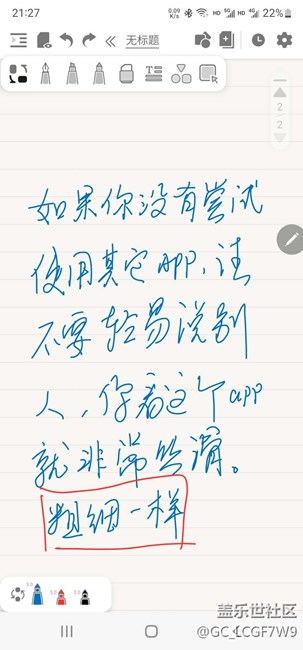 21:27
0.09 K/s HD 5G HD 4G 22%
无标题
2
2
如果你没有尝试
使用其它app,请
不要轻易说别
人,你看这个app
就非常丝滑。
粗细一样
5.0 5.0 5.0
盖乐世社区
@GC_LCGF7W9